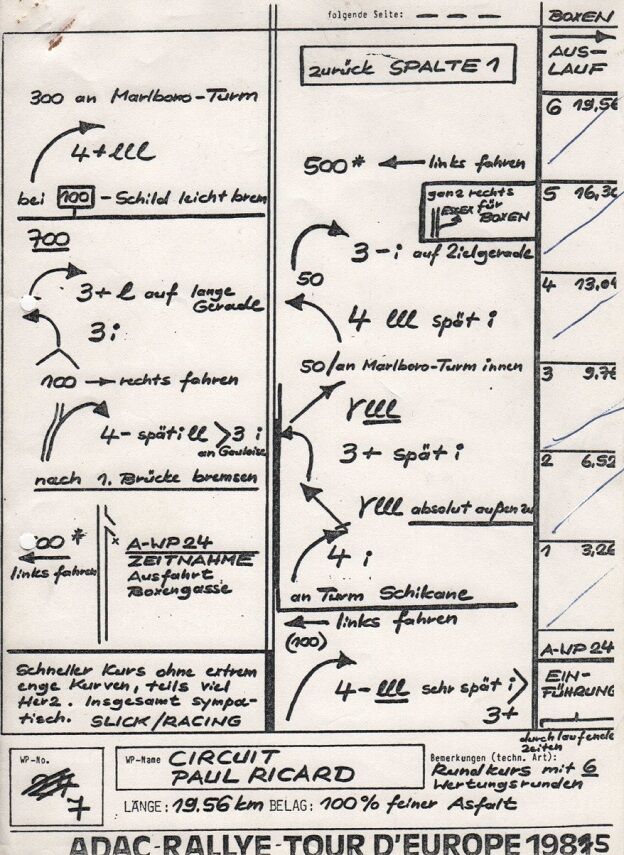 folgende Seite:
BOXEN
300 an Marlboro-Turm
4+lll
bei 100 - Schild leicht brem
700
3+ l auf lange
Gerade
3 i
100 → rechts fahren
4- spät i ll > 3 i
an Gauloise
nach 1. Brücke bremsen
00 *
links fahren
A-WP 24
ZEITNAHME
Ausfahrt
Boxengasse
Schneller Kurs ohne extrem
enge Kurven, teils viel
Herz. Insgesamt sympa-
tisch. SLICK/RACING
zurück SPALTE 1
500* ← links fahren
ganz rechts
für
BOXEN
3 - i auf Zielgerade
50
4 lll spät i
50/an Marlboro-Turm innen
rlll
3+ spät i
rlll absolut außen zu
4 i
an Turm Schikane
← links fahren
(100)
4-lll sehr spät i >
3+
AUS-
LAUF
6 19,56
5 16,30
4 13,04
3 9,78
2 6,52
1 3,26
A-WP 24
EIN-
FÜHRUNG
durchlaufende
Zeiten
WP-No.
7
WP-Name CIRCUIT
PAUL RICARD
LÄNGE: 19.56 km BELAG: 100% feiner Asfalt
Bemerkungen (techn. Art):
Rundkurs mit 6
Wertungsrunden
ADAC-RALLYE-TOUR D'EUROPE 1985